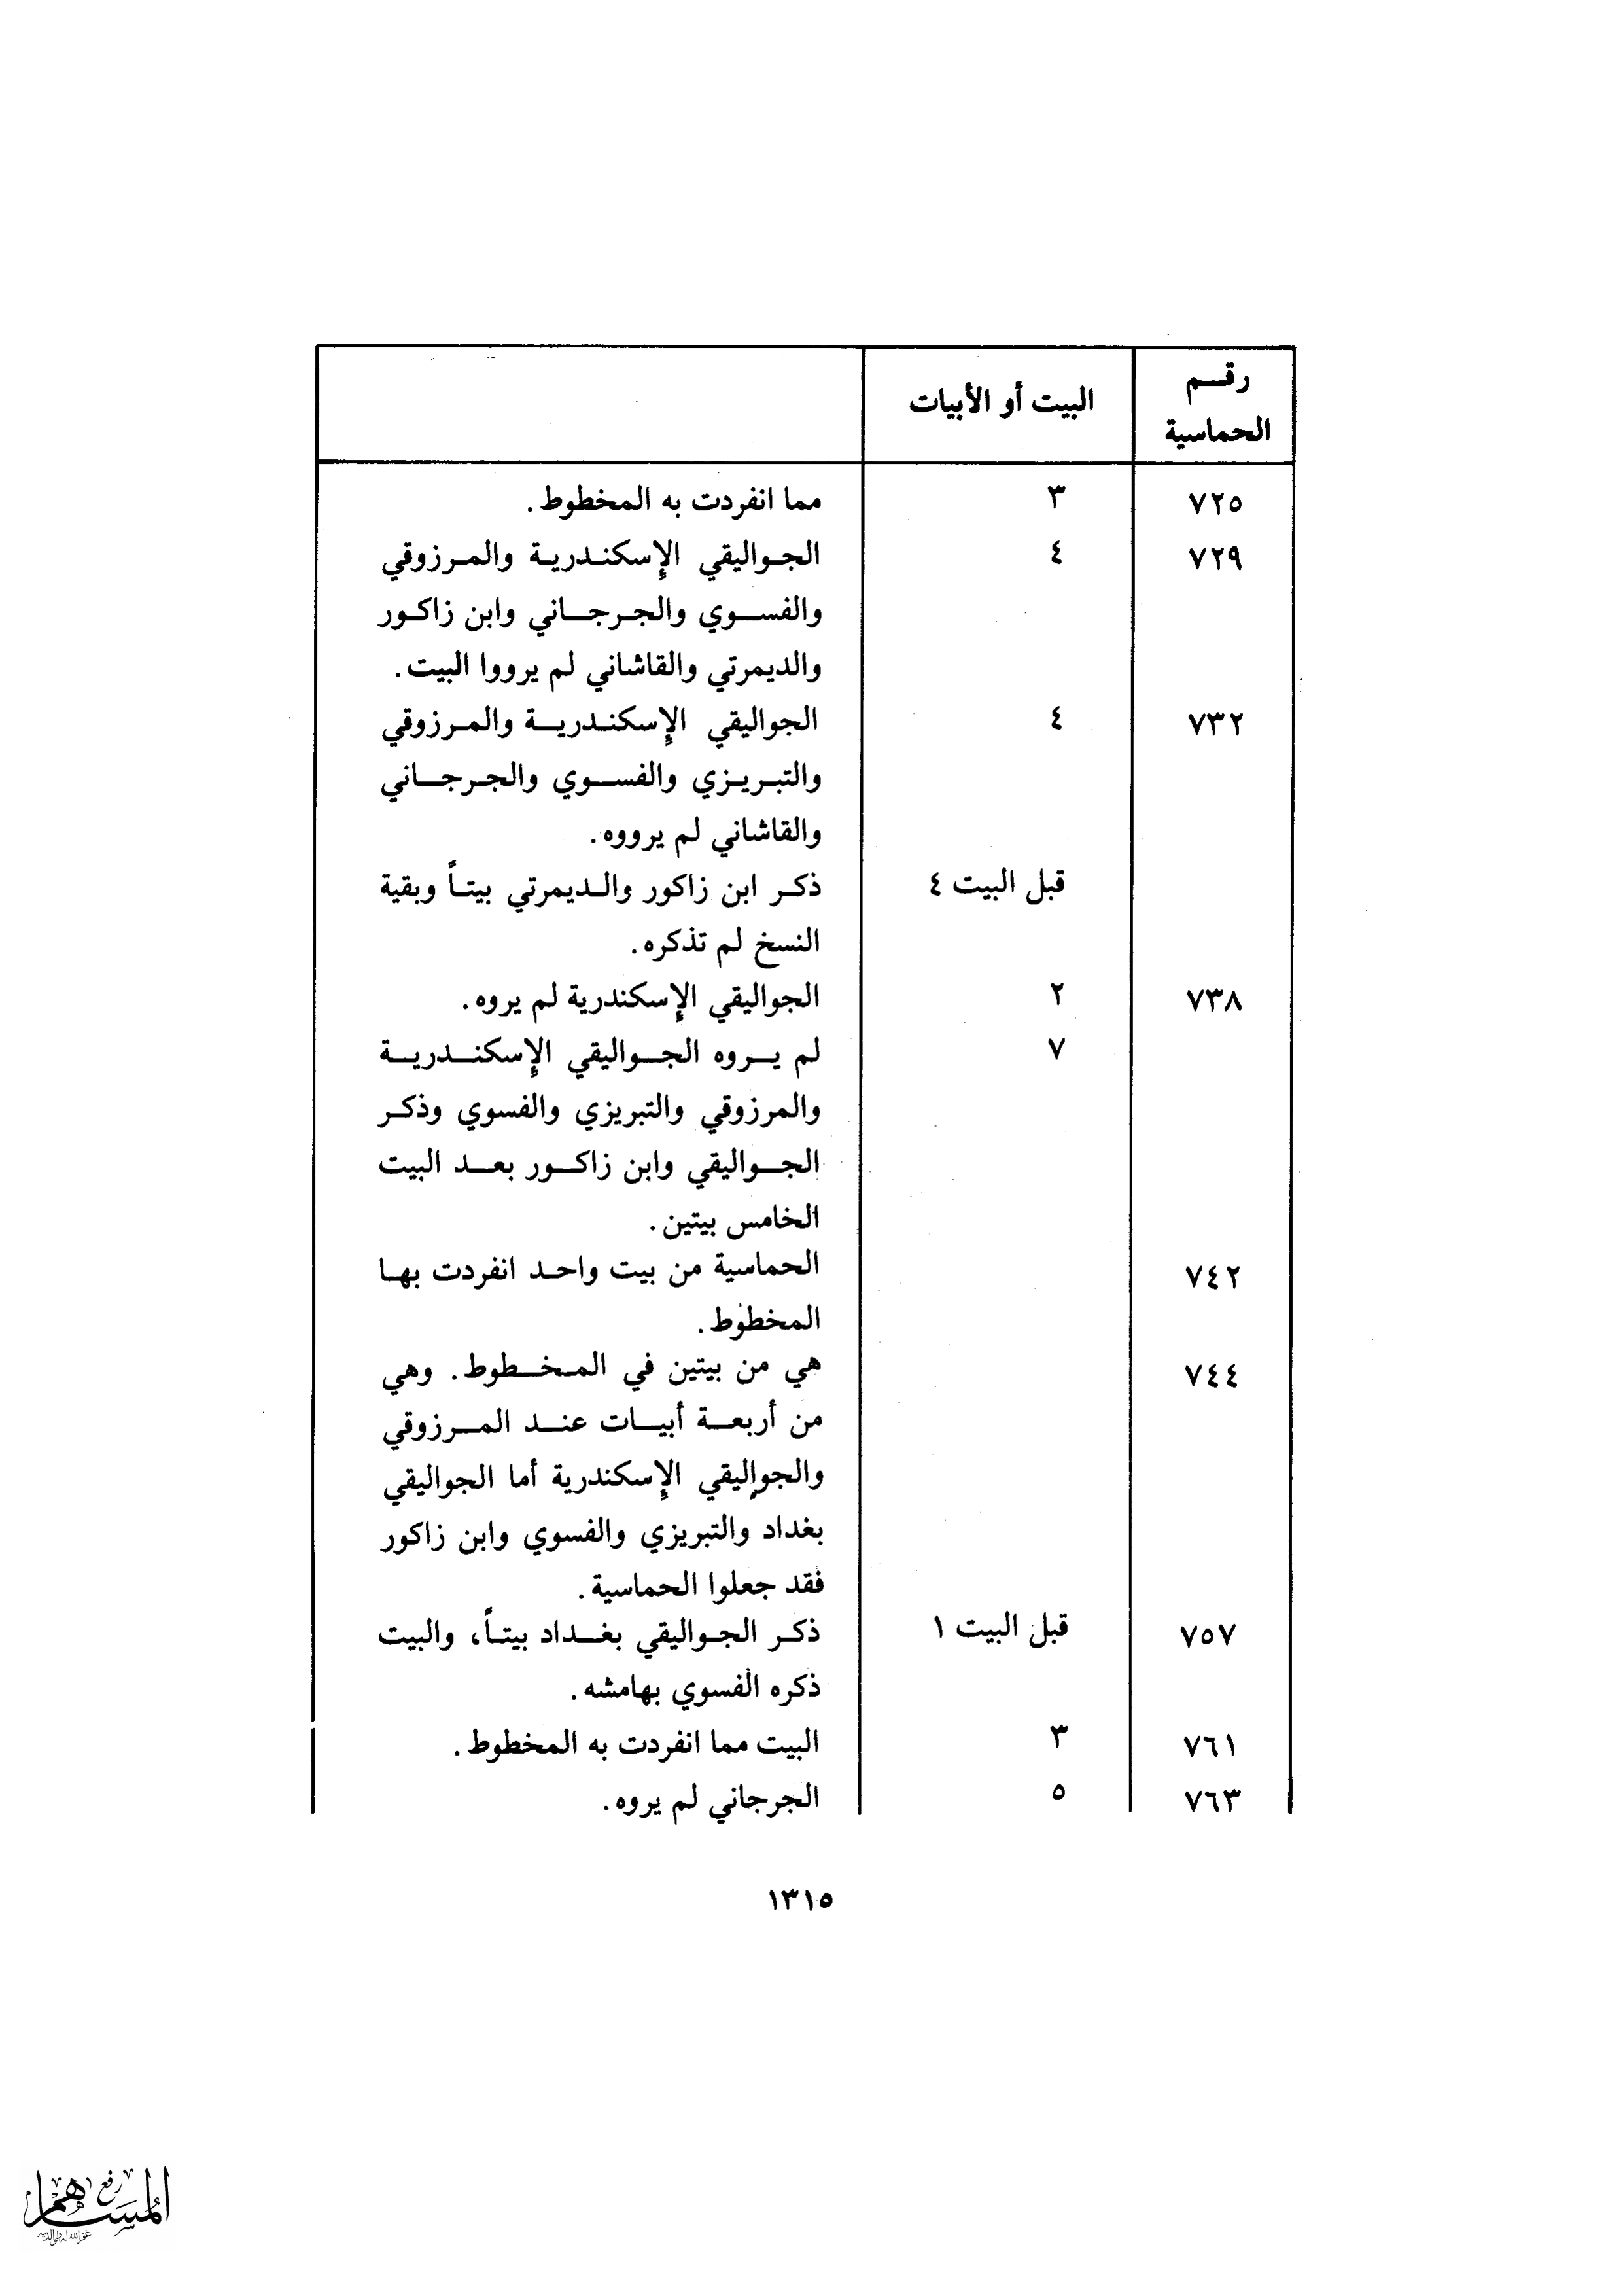 رقم
الحماسية
البيت أو الأبيات
٧٢٥ ٣ مما انفردت به المخطوط.
٧٢٩ ٤ الجواليقي الإسكندرية والمرزوقي
والفسوي والجرجاني وابن زاكور
والديمرتي والقاشاني لم يرووا البيت.
٧٣٢ ٤ الجواليقي الإسكندرية والمرزوقي
والتبريزي والفسوي والجرجاني
والقاشاني لم يرووه.
قبل البيت ٤ ذكر ابن زاكور والديمرتي بيتاً وبقية
النسخ لم تذكره.
٧٣٨ ٢ الجواليقي الإسكندرية لم يروه.
٧ لم يروه الجواليقي الإسكندرية
والمرزوقي والتبريزي والفسوي وذكر
الجواليقي وابن زاكور بعد البيت
الخامس بيتين.
٧٤٢ الحماسية من بيت واحد انفردت بها
المخطوط.
٧٤٤ هي من بيتين في المخطوط. وهي
من أربعة أبيات عند المرزوقي
والجواليقي الإسكندرية أما الجواليقي
بغداد والتبريزي والفسوي وابن زاكور
فقد جعلوا الحماسية.
٧٥٧ قبل البيت ١ ذكر الجواليقي بغداد بيتاً، والبيت
ذكره الفسوي بهامشه.
٧٦١ ٣ البيت مما انفردت به المخطوط.
٧٦٣ ٥ الجرجاني لم يروه.
١٣١٥
رفع
المساهم
غفر الله له ولوالديه